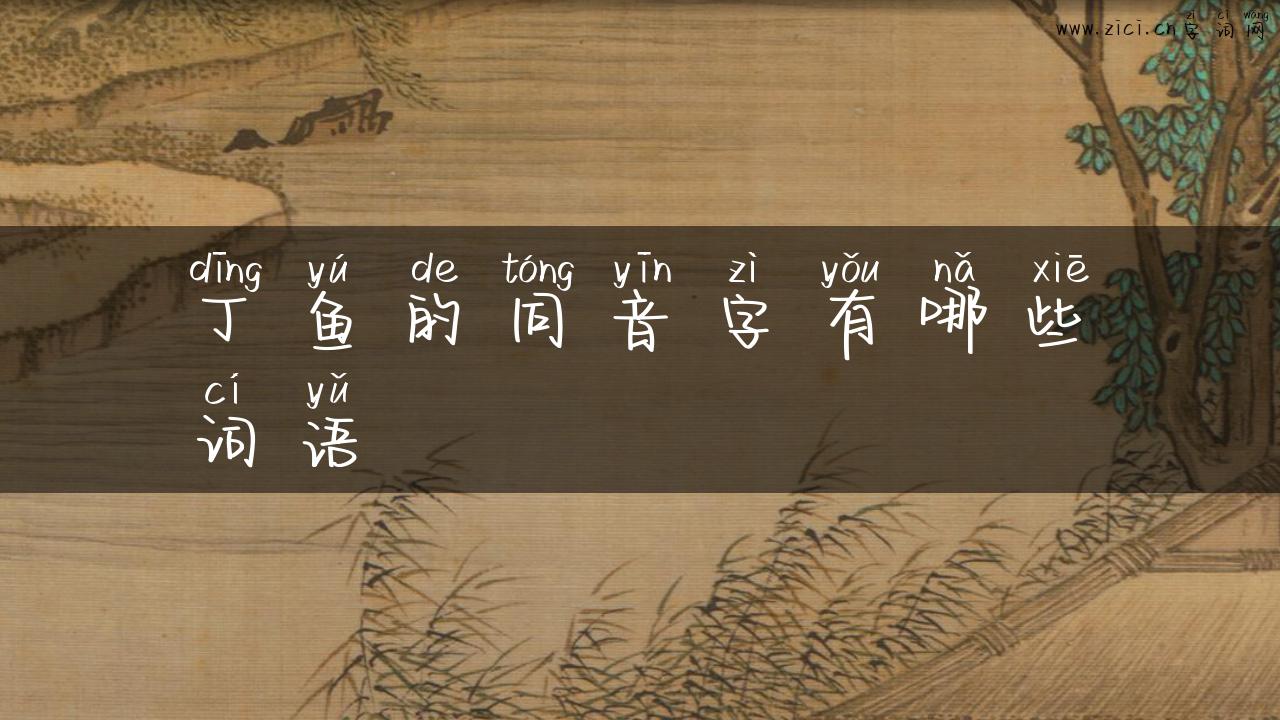 zì cí wǎng
www.zici.cn字词网
dīng yú de tóng yīn zì yǒu nǎ xiē
丁鱼的同音字有哪些
cí yǔ
词语